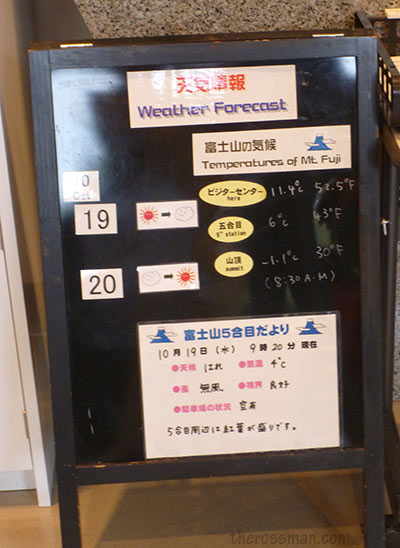 天気情報
Weather Forecast
富士山の気候
Temperatures of Mt. Fuji
10
Oct
19
20
ビジターセンター
here
11.4℃ 52.5°F
五合目
5th station
6℃ 43°F
山頂
summit
-1.1℃ 30°F
(8:30 A.M)
富士山5合目だより
10月19日(水) 9時20分 現在
●天候 はれ ●気温 4℃
●風 無風 ●視界 良好
●駐車場の状況 空有
5合目周辺は紅葉が盛りです。
therossman.com